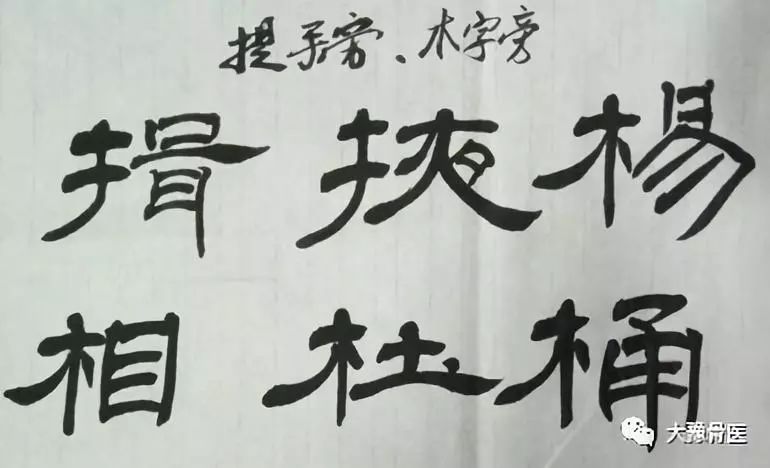 提手旁、木字旁
揖掖楊
相杜桶
大豫骨医